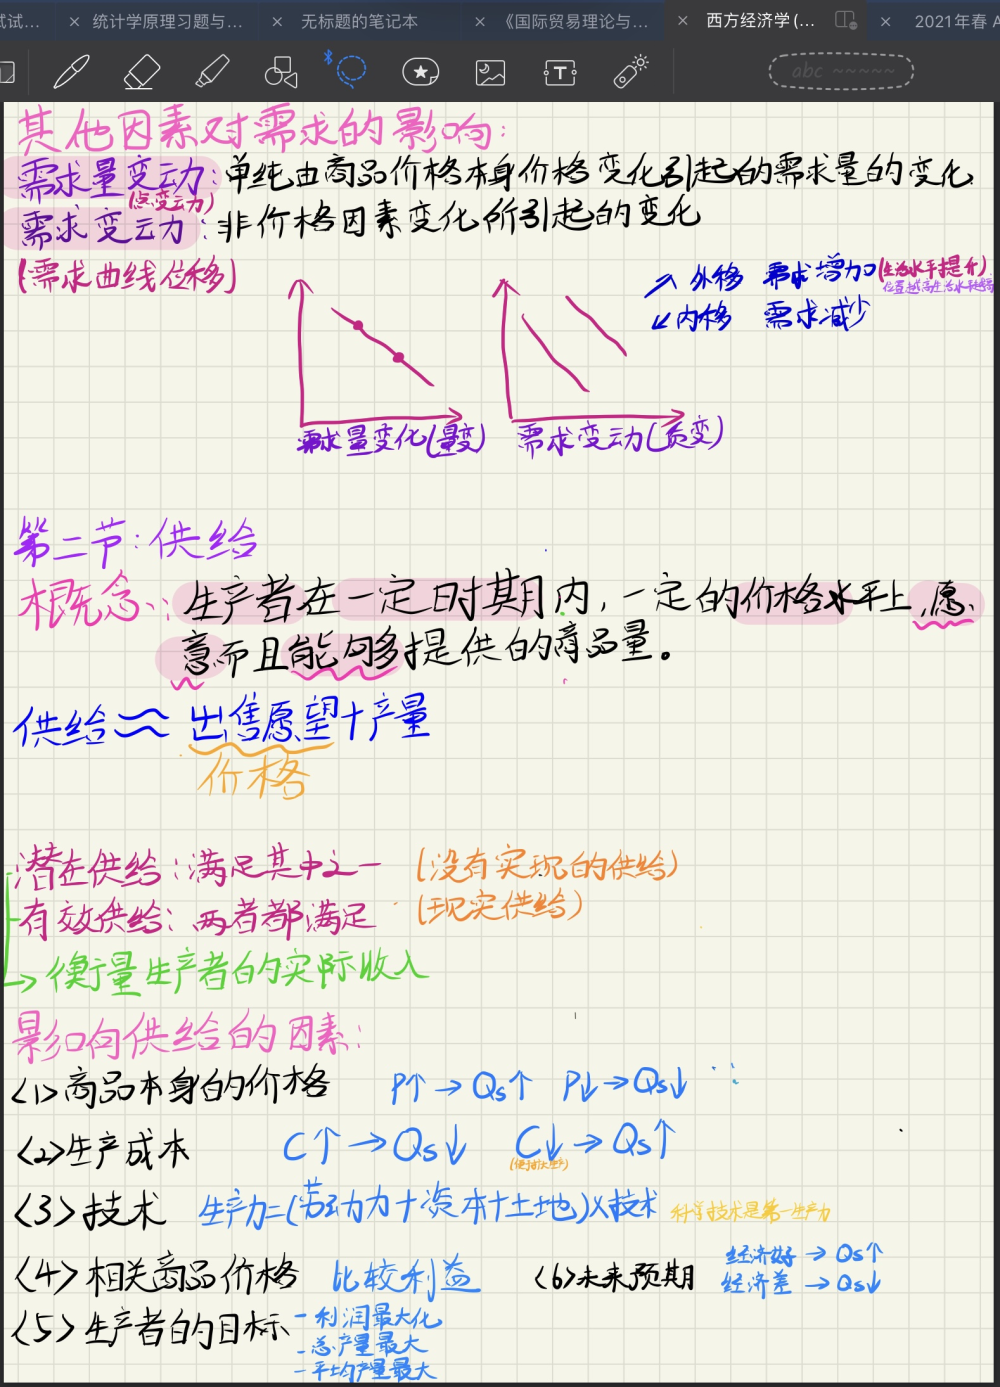 试试...
× 统计学原理习题与...
× 无标题的笔记本
× 《国际贸易理论与...
× 西方经济学 (...
× 2021年春 A
abc ~~~~~
其他因素对需求的影响:
需求量变动:单纯由商品价格本身价格变化引起的需求量的变化
(点变动)
需求变动:非价格因素变化所引起的变化
(需求曲线位移)
↗ 外移 需求增加(生活水平提升)
位置越高生活水平越高
↙ 内移 需求减少
需求量变化(量变) 需求变动(质变)
第二节:供给
概念:生产者在一定时期内,一定的价格水平上,愿
意而且能够提供的商品量。
供给≈出售愿望+产量
价格
潜在供给:满足其中之一 (没有实现的供给)
有效供给:两者都满足 (现实供给)
→衡量生产者的实际收入
影响供给的因素:
<1>商品本身的价格 P↑→Qs↑ P↓→Qs↓
<2>生产成本 C↑→Qs↓ C↓→Qs↑
<3>技术 生产力=(劳动力+资本+土地)×技术 科学技术是第一生产力
<4>相关商品价格 比较利益
<6>未来预期 经济好→Qs↑
经济差→Qs↓
<5>生产者的目标 -利润最大化
-总产量最大
-平均产量最大